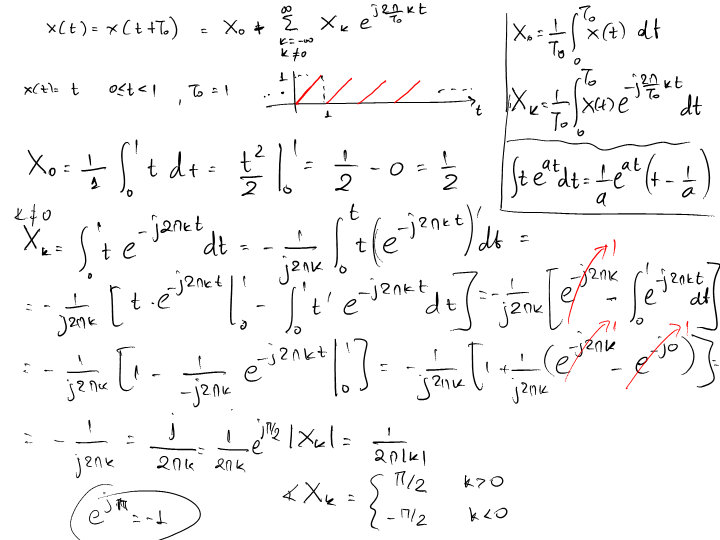 x(t) = x(t+T₀) = X₀ + ∑_{k=-∞, k≠0}^{∞} X_k e^{j\frac{2π}{T₀}kt}
X₀ = \frac{1}{T₀} ∫_0^{T₀} x(t) dt
X_k = \frac{1}{T₀} ∫_0^{T₀} x(t) e^{-j\frac{2π}{T₀}kt} dt
∫ t e^{at} dt = \frac{1}{a} e^{at} (t - \frac{1}{a})
x(t) = t 0≤t<1 , T₀ = 1
1
1
t
X₀ = \frac{1}{1} ∫_0^1 t dt = \frac{t²}{2} |_0^1 = \frac{1}{2} - 0 = \frac{1}{2}
k≠0
X_k = ∫_0^1 t e^{-j2πkt} dt = - \frac{1}{j2πk} ∫_0^t t (e^{-j2πkt})' dt =
= - \frac{1}{j2πk} [ t · e^{-j2πkt} |_0^1 - ∫_0^1 t' e^{-j2πkt} dt ] = - \frac{1}{j2πk} [ e^{-j2πk} 1 - ∫_0^1 e^{-j2πkt} dt ]
= - \frac{1}{j2πk} [ 1 - \frac{1}{-j2πk} e^{-j2πkt} |_0^1 ] = - \frac{1}{j2πk} [ 1 + \frac{1}{j2πk} (e^{-j2πk} 1 - e^{-j0} 1) ] =
= - \frac{1}{j2πk} = \frac{j}{2πk} = \frac{1}{2πk} e^{jπ/2} |X_k| = \frac{1}{2π|k|}
∢X_k = { π/2 k>0
-π/2 k<0
e^{jπ} = -1